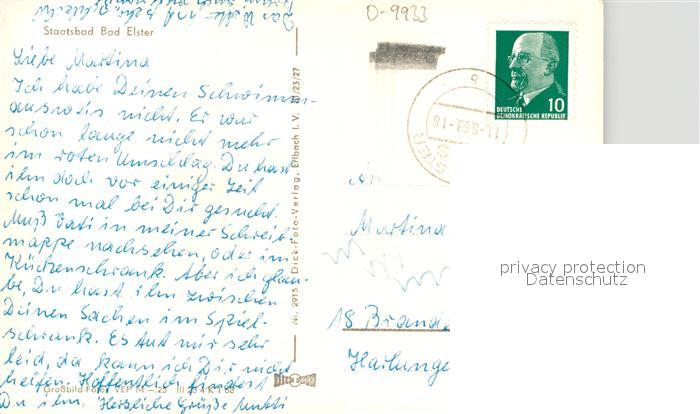 Staatsbad Bad Elster
Liebe Martina
Ich habe Deinen Schwimm-
ausweis nicht. Er war
schon lange nicht mehr
im roten Umschlag. Du hast
ihn doch vor einiger Zeit
schon mal bei Dir gesucht.
Muß Vati in meiner Schreib
mappe nachsehen, oder im
Küchenschrank. Aber ich glau-
be, Du hast ihn zwischen
Deinen Sachen im Spiel-
schrank. Es tut mir sehr
leid, da kann ich Dir nicht
helfen. Hoffentlich findest
Du ihn. Herzliche Grüße Mutti
Großbild-Foto VEP M —.25
Nr. 2915 Dick-Foto-Verlag, Erlbach i. V.
O-9933
DEUTSCHE
DEMOKRATISCHE REPUBLIK
10
An
Martina
18 Brande
privacy protection
Datenschutz